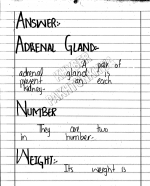 ANSWER:-
ADRENAL GLAND:-
A pair of
adrenal gland is
present on each
kidney.
NUMBER
They are two
in number.
WEIGHT:-
Its weight is